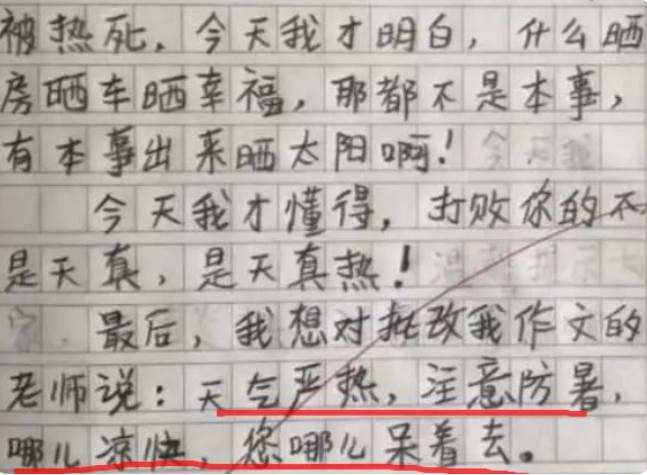 被热死，今天我才明白，什么晒
房晒车晒幸福，那都不是本事，
有本事出来晒太阳啊！
今天我才懂得，打败你的不
是天真，是天真热！
最后，我想对批改我作文的
老师说：天气严热，注意防暑，
哪儿凉快，您哪儿呆着去。